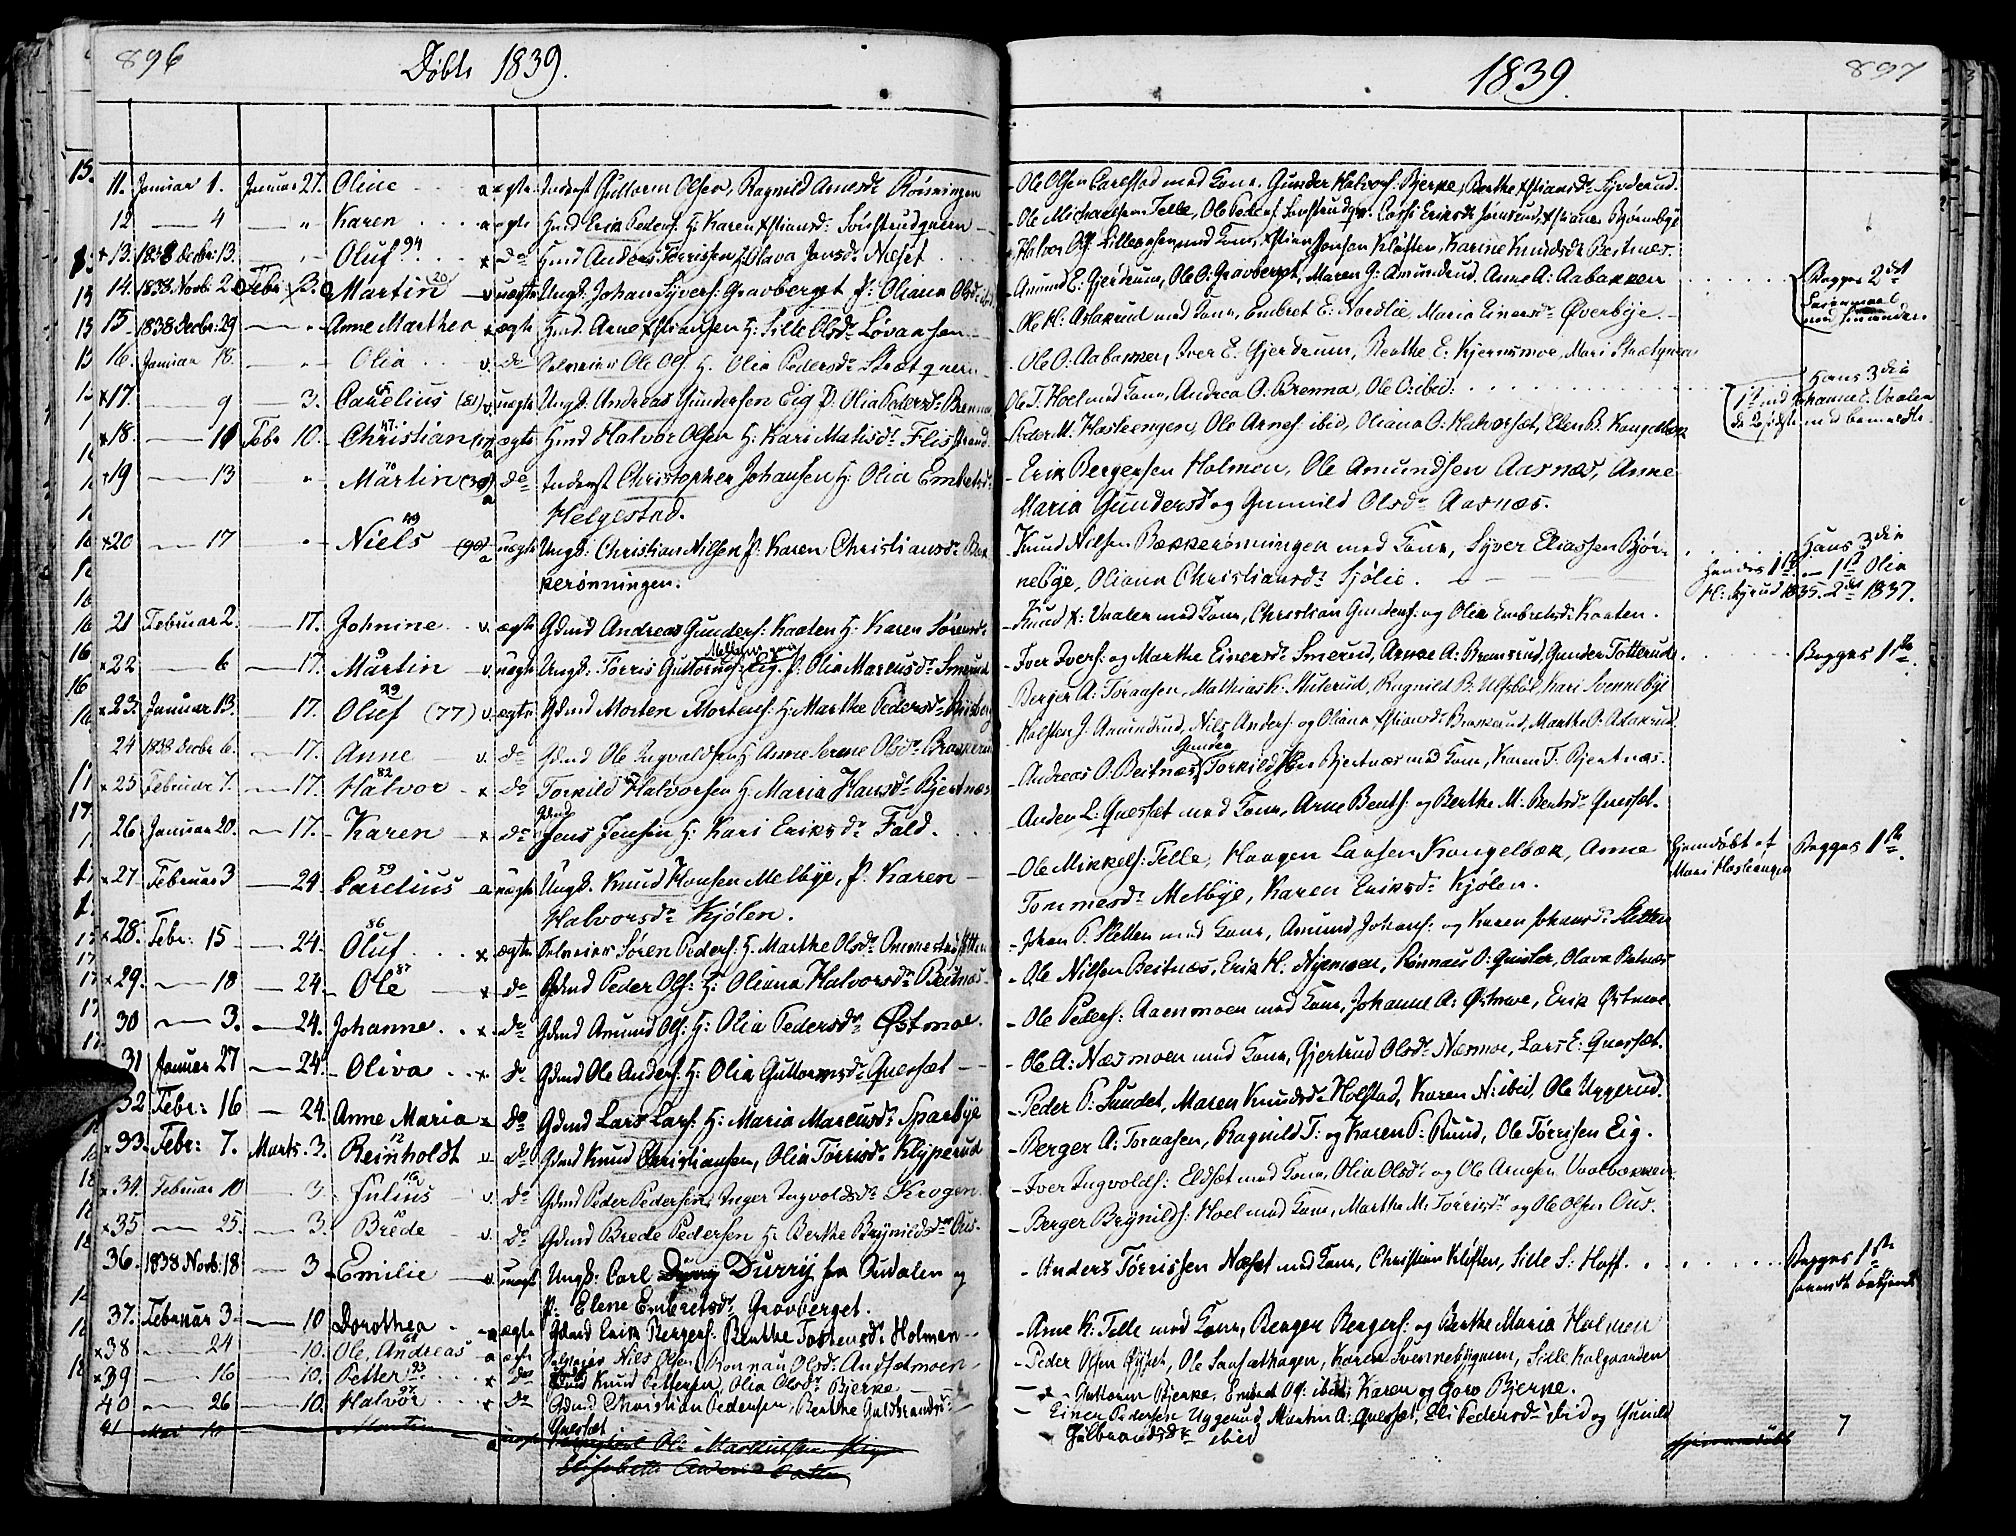 896
Døbte 1839.
11. Januar 1. Januar 27. Oline a ægte Inderst Guttorm Olsen, Ragnild Arnesdr Rønningen
12 — 4 — " Karen a ægte Hmd Erik Peders: H: Karen Xstiansd:
x 13. 1838 Decbr: 13. — " Oluf 94 x do Hmd Anders Tørrissen H: Olava Jonsdr Næset
14. 1838 Novb: 2. Febr 3. Martin 20 v uægte Ungk: Johan Syvers: Gravberget P: Oliana Olsdr ibid
15 1838 Decbr: 29 — " Anne Marthea x ægte Hmd. Arne Xstiansen H: Sille Olsdr Løvaasen
16. Januar 18. — " Olia v. do Ole Ols: H. Olia Pedersdr
x 17. — 9 — 3. (81) v uægte Ungk: Andreas Gundersen Eig P: Olia Pedersdr Brenna
x 18. — 11 Febr 10. Christian 47. a ægte Hmd Halvor Olsen H: Kari Matisdr Flisstrand
19 — 13 " Martin 70 (38) a do Inderst Christopher Johansen H: Olia Embretsd:
Helgestad.
x 20 — 17 — " Niels 49 (90) a uægte Ungk: Christian Nilsen P: Karen Christiansdr Bæk
kerønningen.
21 Februar 2. — 17. Johnine v. ægte Gdmd Andreas Gunders: Kaaten H: Karen Sørensdr
x 22 — 6 — 17. Martin 9 v uægte Ungk: Tørris Guttorms: Eig. P: Olia Marcusdr Smerud
x 23. Januar 13. 17. Oluf 29 (77) v. ægte Gdmd Morten Mortens: H: Marthe Pedersdr
24 1838 Decbr 6. — 17. Anne v. do Gdmd Ole Ingvaldsen H: Anne Serene Olsdr
x 25 Februar 7. — 17. Halvor 82 x do Torkild Halvorsen H: Maria Hansdr Bjertnæs
26 Januar 20. — 17. Karen x do Gdmd Jens Jensen H: Kari Eriksdr Fald.
x 27 Februar 3 — 24 Carelius 59 a uægte Ungk. Knud Hansen Melbye, P: Karen
Halvorsdr Kjølen.
x 28. Febr: 15 — 24. Oluf 86 x ægte Søren Peders: H: Marthe Olsdr
x 29. — 18 — 24. Ole 87 x do Gdmd Peder Ols: H: Oliana Halvorsdr Beitnæs.
30 — 3. — 24. Johanne x do Gdmd Amund Ols: H: Olia Pedersdr Østmoe.
31 Januar 27 — 24. Oliva x do Gdmd Ole Anders: H: Olia Guttormsdr Quesset
32 Febr: 16 — 24. Anne Maria x do Gdmd Lars Lars: H: Maria Marcusdr Sparbye
x 33. Febr: 7. Marts. 3. Reinholdt 12 v do Gdmd Knud Christiansen, Olia Tørrisdr Klyperud
x 34. Februar 10 — 3. Julius 16 v. do Gdmd Peder Pedersen, Inger Ingvoldsdr Krogen
x 35 — 25. — 3. Brede 10 v. do Gdmd Brede Pedersen H: Berthe Brynildsdr Ous.
36. 1838 Novb: 18 — 3 Emilie v. uægt Ungk: Carl Durry fra Sudalen og
P: Elene Embretsdr Gravberget.
37. Februar 3 — 10 Dorothea a ægte Gdmd Erik Bergers: Berthe Tostensdr Holmen
x 38 — 24 — 10. Ole Andreas 61 a ægte Nils Olsen, Rønnau Olsdr Andsetmoen
x 39 — 16 — 10. Petter 93 x do Knud Pettersen, Olia Olsdr Bjerke
40 — 26 — 10. Halvor 97 x do Gdmd Christian Pedersen, Berthe Gulbrandsdr
Quesset
41 Mai 10 Martin a uægte Ole Markussen Eig
Elisabeth
1839. 897
- Ole Olsen Carlstad med Kone, Gunder Halvors: Bjerke, Berthe Xstiansdr Syverud.
- Ole Michaelsen Telle, Ole Peders: Eriksdr Xstiane Bjørnebye
- Halvor Ols: Lilleaasen med Kone, Xstian Jonsen Kløften, Karine Knudsdr Beitnæs.
- Amund E. Gjerdrum, Ole O: Gravberget, Maren G: Amundrud, Anne A: Aabakken Begges 2det
Leiermaal
med hinanden.
- Ole H: Aslakrud med Kone, Embret E: Nordlie, Maria Einersdr Øverbye.
- Ole O: Aabakken, Iver E. Gjerdrum, Berthe E. Kjernsmoe, Mari
Ole T. Hoel med Kone, Andrea O. Brenna, Ole O: ibid: Hans 3die
1st med Johanne E. Vaaler
de 2 sidste med bemeldte
Peder M. Hasleengen, Ole Arnes: ibid, Oliana O: Halvorset, Elen B. Kongelbæk
- Erik Bergersen Holmen, Ole Amundsen Aasnæs, Anne
Maria Gundersdr og Gunnild Olsdr Aasnæs.
- Knud Nilsen Bækkerønningen med Kone, Syver Eliassen Bjør-
nebye, Oliana Christiansdr Sjølie. Hans 3die
Hendes 1ste — 1st Olia
H: Byrud 1835. 2det 1837.
- Knud X: Vaaler med Kone, Christian Gunders: og Olia Embretsdr Kaaten.
- Iver Ivers: og Marthe Einersdr Smerud, Anne A: Bramsrud, Gunder Totterud Begges 1ste.
- Berger A: Toraasen, Mathias K. Hulerud, Ragnild B. Ulfsbøl, Kari Svennebye
- Halsten J. Amundrud, Nils Anders: og Oliana Xstiansdr Brakkerud, Marthe O. Aslakrud
- Andreas O: Beitnæs, Gunder Torkilds: Bjertnæs med Kone, Karen T. Bjertnæs.
- Anders L: Quesset med Kone, Arne Bents: og Berthe M. Bentsdr Quesset.
- Ole Mikkels: Telle, Haagen Larsen Kongelbæk, Anne Hjemdøbt af Begges 1ste.
Tommesdr Melbye, Karen Eriksdr Kjølen. Mari Hasleengen
- Johan P. Sletten med Kone, Amund Johans: og Karen Johansdr Sletten
- Ole Nilsen Beitnæs, Erik H. Nyemoen, Rønnau O: Quisler, Olava Beitnæs
- Ole Peders: Aaenmoen med Kone, Johanne A: Østmoe, Erik Østmoe
- Ole A: Næsmoen med Kone, Gjertrud Olsdr Næsmoe, Lars E: Quesset.
- Peder P: Sundet, Maren Knudsdr Holstad, Karen N: ibid, Ole Uggerud.
- Berger A: Toraasen, Ragnild T: og Karen P: Ruud, Ole Tørrisen Eig.
- Iver Ingvolds: Eldset med Kone, Olia Olsdr og Ole Arnesen Vaalbakken
- Berger Brynilds: Hoel med Kone, Marthe M. Tørrisdr og Ole Olsen Ous.
- Anders Tørrissen Næset med Kone, Christian Kløften, Sille S: Hoff. Begges 1ste
- Arne K: Telle med Kone, Berger Bergers: og Berthe Maria Holmen
- Peder Olsen Øyset, Ole Karen Svennebyeneie, Sille Kalgaarden
- Guttorm Bjerke, Embret Ols: ibid, Karen og Goro Bjerke.
- Einer Pedersen Uggerud, Martin A: Quesset, Eli Pedersdr ibid og Gunild
Gulbrandsdr ibid
hjemmedøbt 7